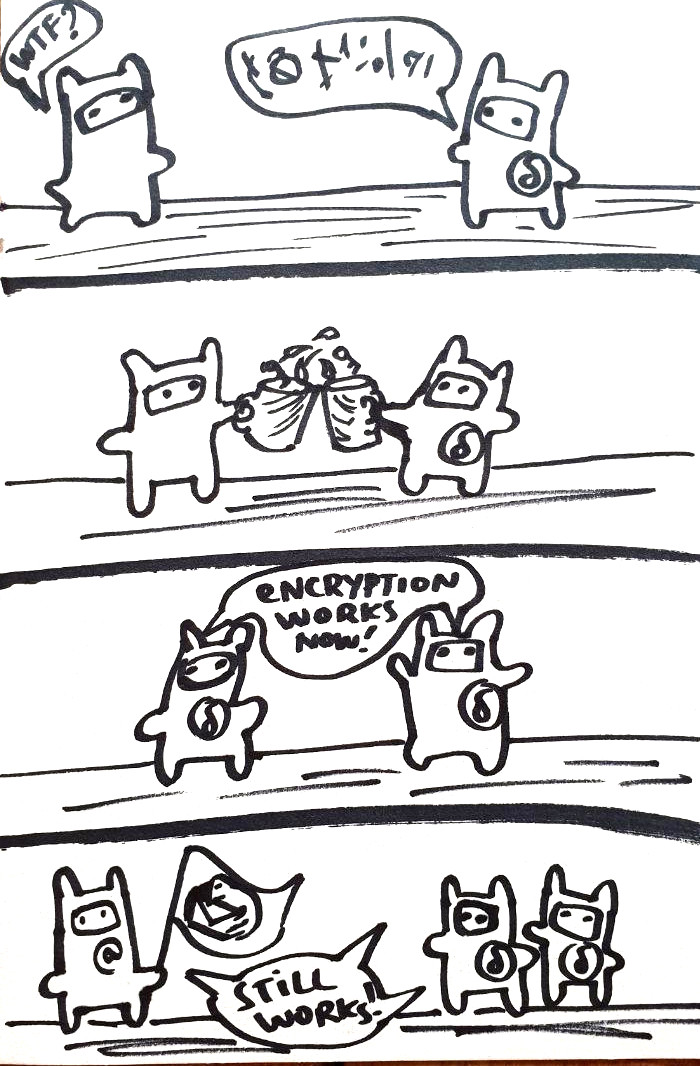 WTF?
ENCRYPTION
WORKS
NOW!
@
STILL
WORKS!